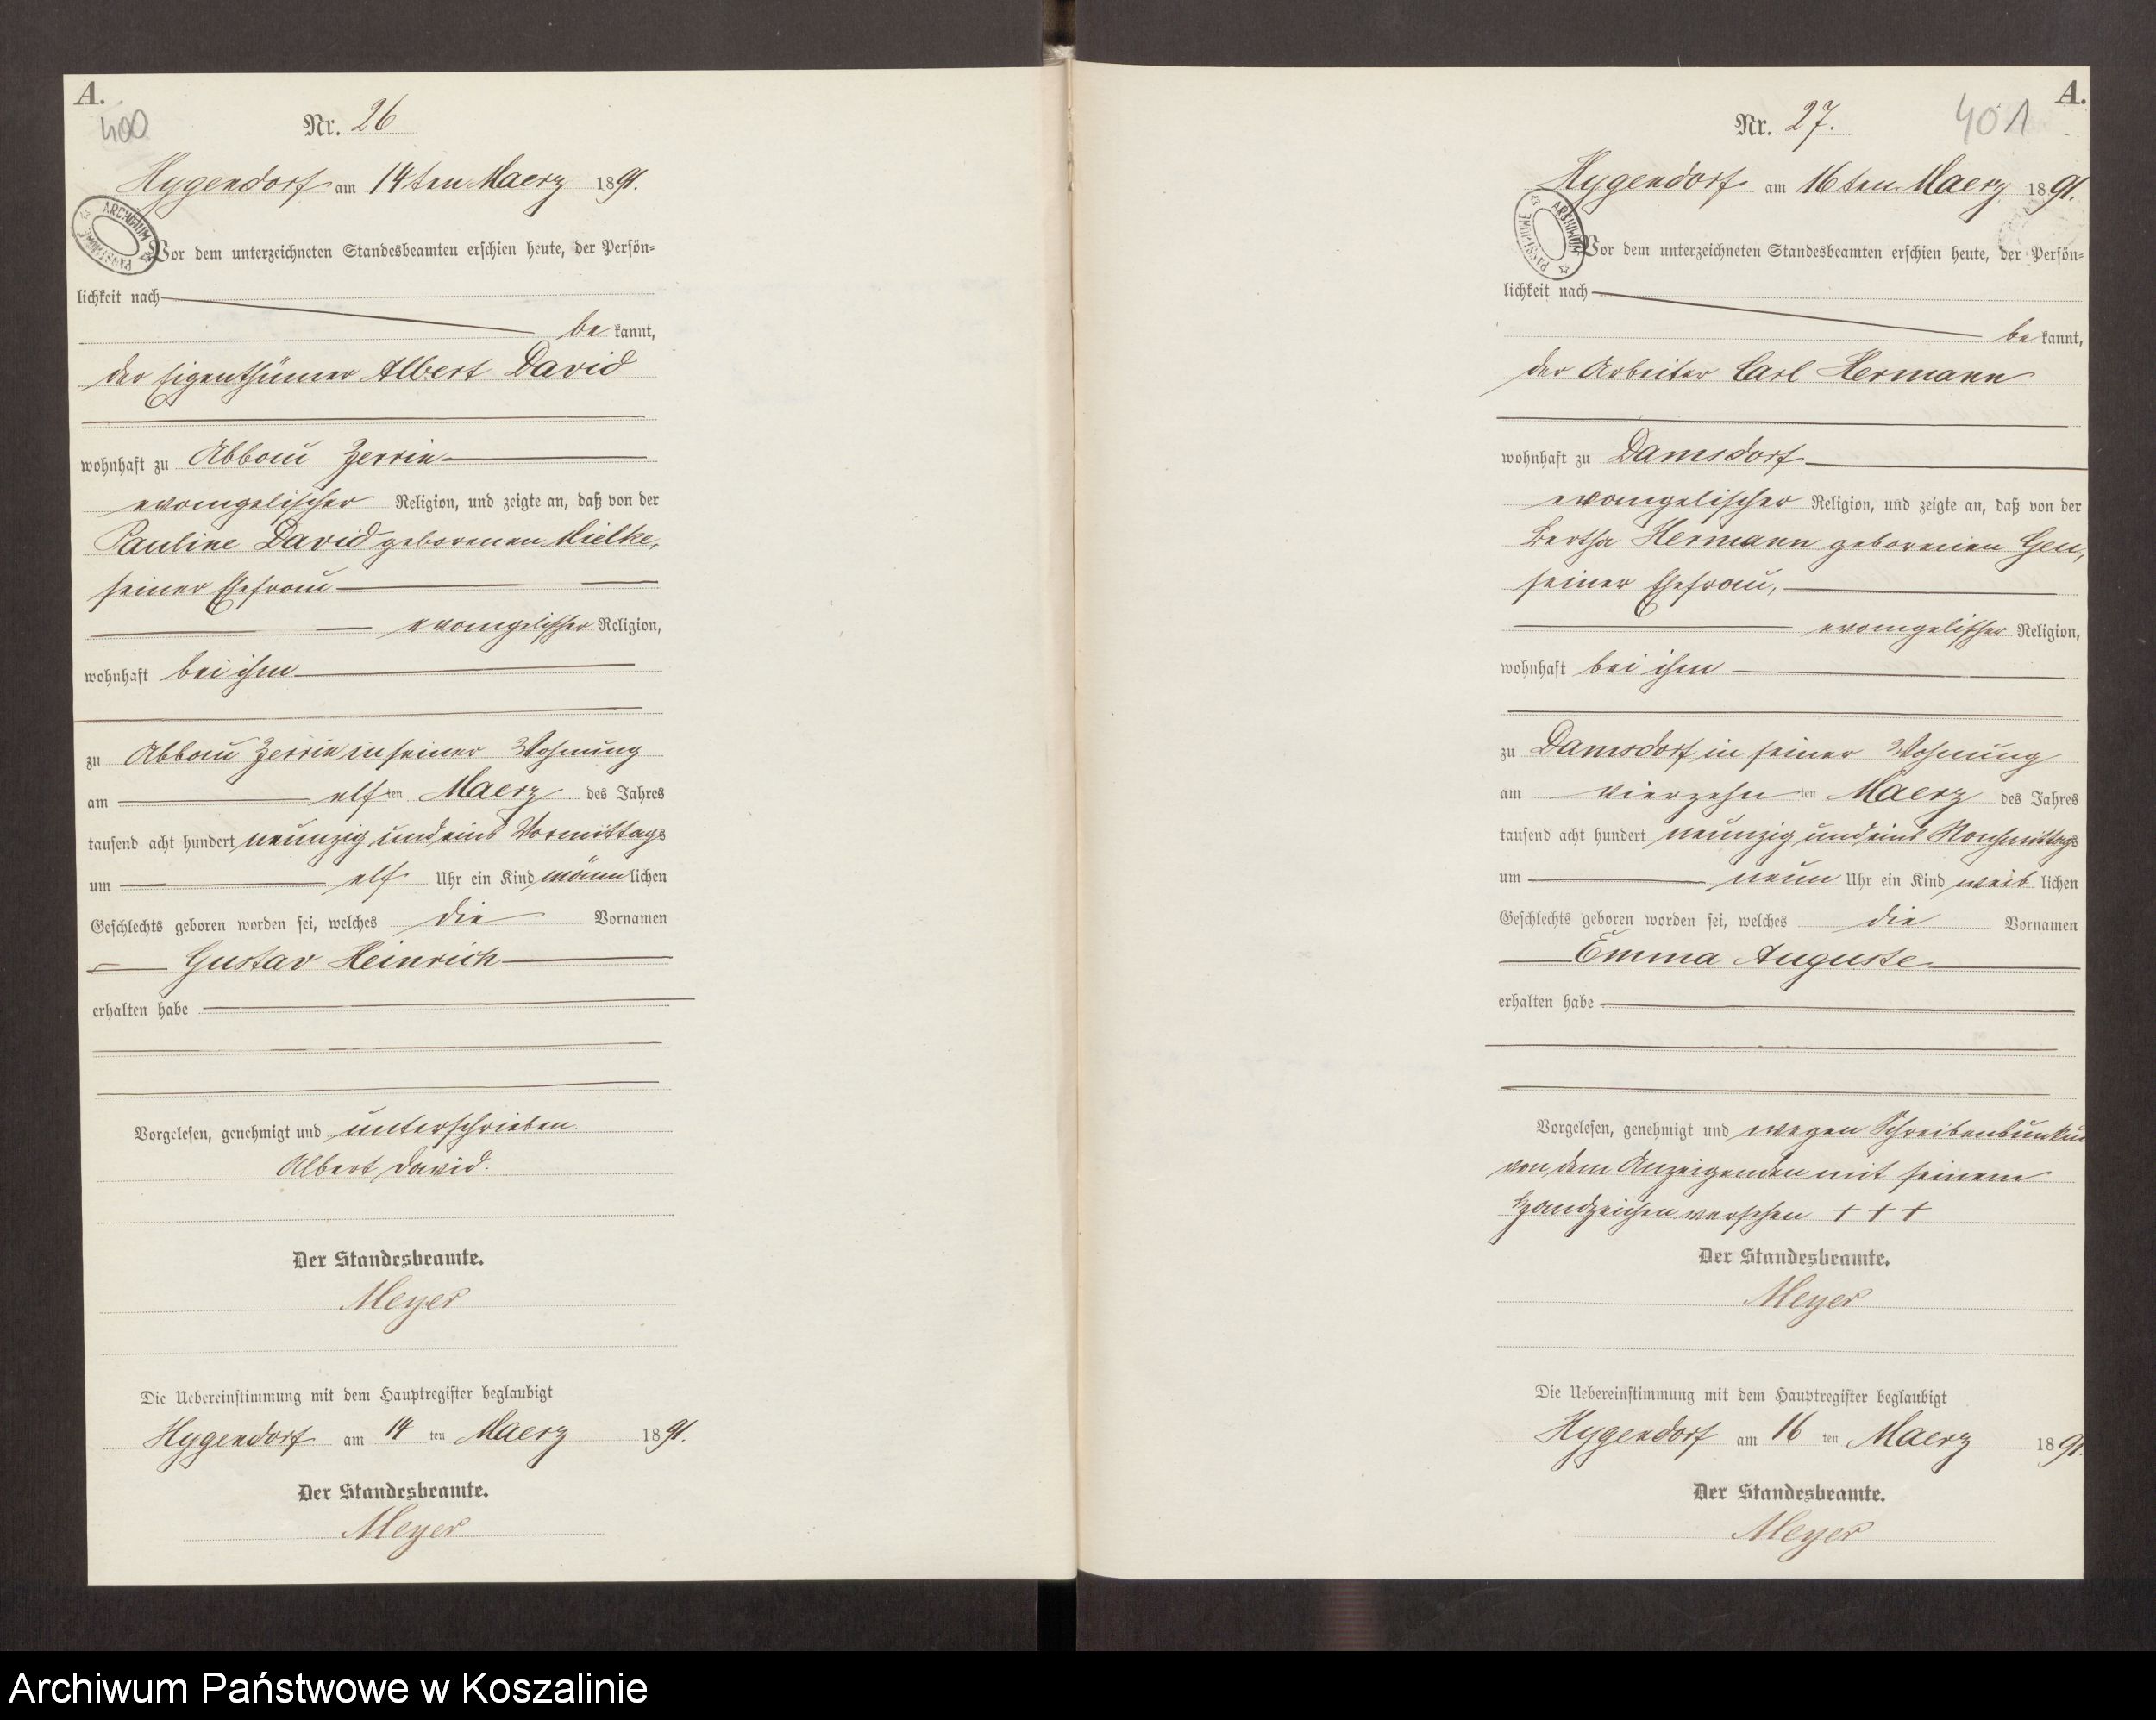 A.
400
Nr. 26
Hygendorf am 14ten Maerz 1891.
ARCHIWUM PAŃSTWOWE
Vor dem unterzeichneten Standesbeamten erschien heute, der Persön=
lichkeit nach
be kannt,
der Eigenthümer Albert David
wohnhaft zu Abbau Zerrin
evangelischer Religion, und zeigte an, daß von der
Pauline David geborenen Mielke,
seiner Ehefrau
evangelischer Religion,
wohnhaft bei ihm
zu Abbau Zerrin in seiner Wohnung
am elf ten Maerz des Jahres
tausend acht hundert neunzig und eins Vormittags
um elf Uhr ein Kind männ lichen
Geschlechts geboren worden sei, welches die Vornamen
Gustav Heinrich
erhalten habe
Vorgelesen, genehmigt und unterschrieben.
Albert David.
Der Standesbeamte.
Meyer
Die Uebereinstimmung mit dem Hauptregister beglaubigt
Hygendorf am 14 ten Maerz 1891.
Der Standesbeamte.
Meyer
A.
401
Nr. 27.
Hygendorf am 16ten Maerz 1891.
ARCHIWUM PAŃSTWOWE
Vor dem unterzeichneten Standesbeamten erschien heute, der Persön=
lichkeit nach
be kannt,
der Arbeiter Carl Hermann
wohnhaft zu Damsdorf
evangelischer Religion, und zeigte an, daß von der
Bertha Hermann geborenen Gen,
seiner Ehefrau,
evangelischer Religion,
wohnhaft bei ihm
zu Damsdorf in seiner Wohnung
am vierzehn ten Maerz des Jahres
tausend acht hundert neunzig und eins Nachmittags
um neun Uhr ein Kind weib lichen
Geschlechts geboren worden sei, welches die Vornamen
Emma Auguste
erhalten habe
Vorgelesen, genehmigt und wegen Schreibensunkun
von dem Anzeigenden mit seinem
Handzeichen versehen + + +
Der Standesbeamte.
Meyer
Die Uebereinstimmung mit dem Hauptregister beglaubigt
Hygendorf am 16 ten Maerz 1891.
Der Standesbeamte.
Meyer
Archiwum Państwowe w Koszalinie